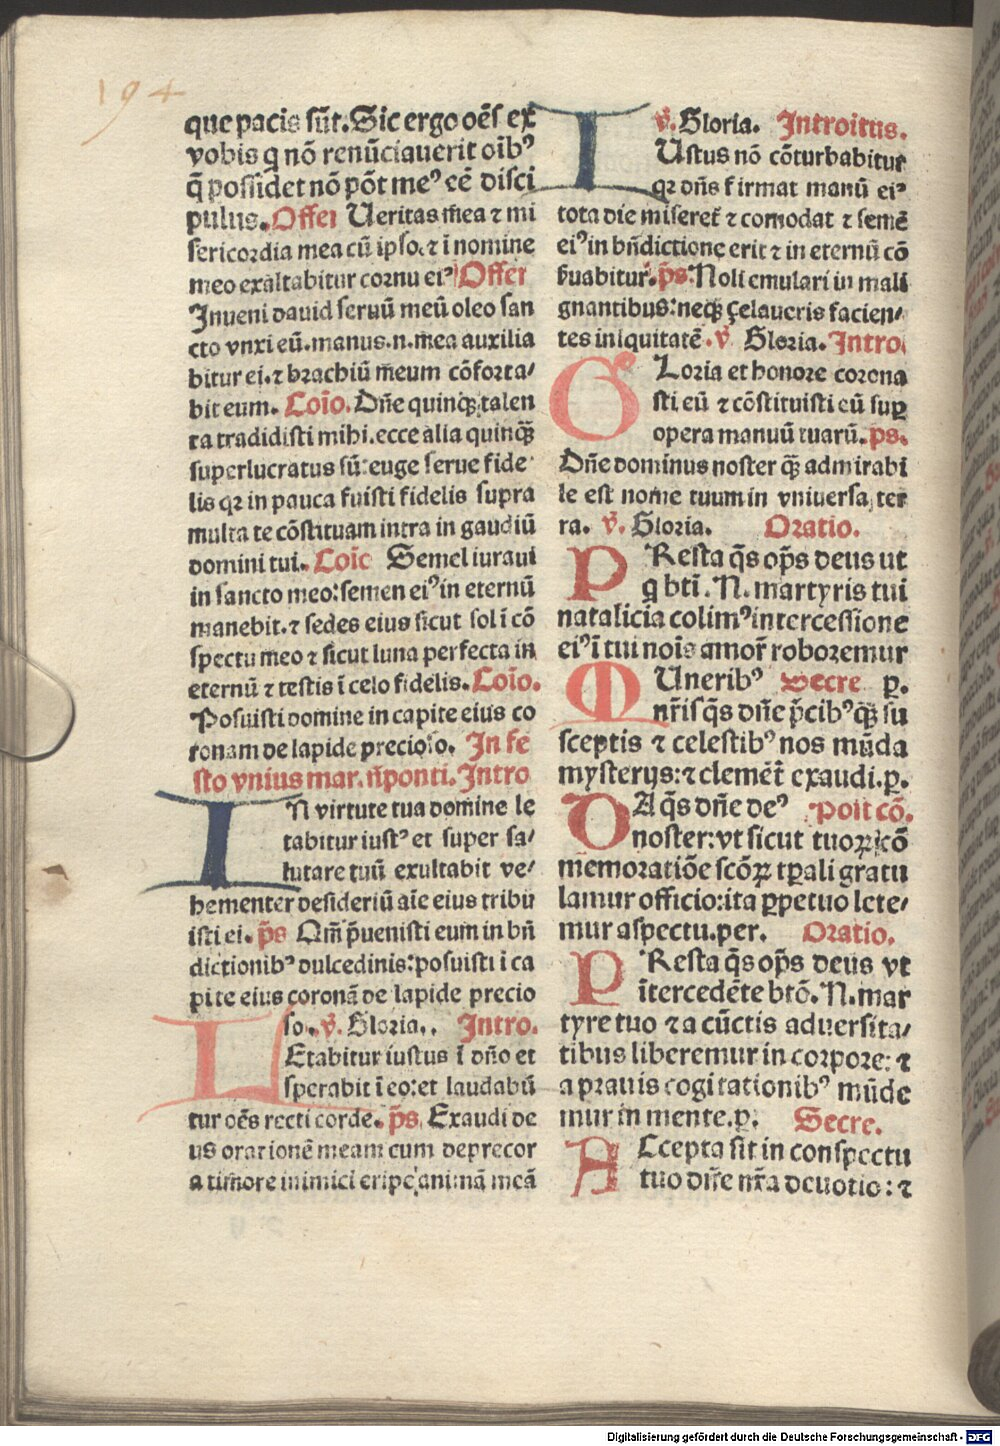 194
que pacis sūt. Sic ergo oēs ex
vobis q nō renūciauerit oībꝰ
q̄ possidet nō pōt meꝰ eē disci
pulus. Offer Ueritas mea ⁊ mi
sericordia mea cū ipso. ⁊ ī nomine
meo exaltabitur cornu eiꝰ Offer
Inueni dauid seruū meū oleo san
cto vnxi eū. manus. n. mea auxilia
bitur ei. ⁊ brachiū meum cōforta/
bit eum. Coīo. Dñe quinqꝫ talen
ta tradidisti mihi. ecce alia quinqꝫ
superlucratus sū: euge serue fide
lis qꝛ in pauca fuisti fidelis supra
multa te cōstituam intra in gaudiū
domini tui. Coīo Semel iuraui
in sancto meo: semen eiꝰ in eternū
manebit. ⁊ sedes eius sicut sol ī cō
spectu meo ⁊ sicut luna perfecta in
eternū ⁊ testis ī celo fidelis. Coīo.
Posuisti domine in capite eius co
ronam de lapide precioso. In fe
sto vnius mar. n̄ponti. Intro
IN virtute tua domine le
tabitur iustꝰ et super sa/
lutare tuū exultabit ve/
hementer desideriū aīe eius tribu
isti ei. p̄s Qm̄ p̄uenisti eum in bn̄
dictionibꝰ dulcedinis: posuisti ī ca
pite eius coronā de lapide precio
so. v̄. Gloria.. Intro.
LEtabitur iustus ī dño et
sperabit ī eo: et laudabū
tur oēs recti corde. p̄s. Exaudi de
us orationē meam cum deprecor
a timore inimici eripe animā meā
v̄. Gloria. Introitus.
IUstus nō cōturbabitur
qꝛ dñs firmat manū eiꝰ
tota die miseret̄ ⁊ comodat ⁊ semē
eiꝰ in bn̄dictione erit ⁊ in eternū cō
ẜuabitur. p̄s. Noli emulari in mali
gnantibus: neqꝫ çelaueris facien/
tes iniquitatē. v̄ Gloria. Intro.
GLoria et honore corona
sti eū ⁊ cōstituisti eū suꝑ
opera manuū tuarū. ps.
Dñe dominus noster qꝫ admirabi
le est nome tuum in vniuersa ter
ra. v̄. Gloria. Oratio.
PResta q̄s op̄s deus ut
q bt̄i. N. martyris tui
natalicia colimꝰ intercessione
eiꝰ ī tui nois̄ amor̄ roboremur
MUneribꝰ Secre p.
nr̄is q̄s dñe p̄cibꝰ qꝫ su
sceptis ⁊ celestibꝰ nos mūda
mysterijs: ⁊ clemēt̄ exaudi. p.
DA q̄s dñe deꝰ Post cō.
noster: vt sicut tuoꝝ cō
memoratiōe scōꝝ tꝑali gratu
lamur officio: ita ꝑpetuo lete/
mur aspectu. per. Oratio.
PResta q̄s op̄s deus vt
ītercedēte btō. N. mar
tyre tuo ⁊ a cūctis aduersita/
tibus liberemur in corpore: ⁊
a prauis cogitationibꝰ mūde
mur in mente. p. Secre.
ACcepta sit in conspectu
tuo dñe nr̄a deuotio: ⁊
Digitalisierung gefördert durch die Deutsche Forschungsgemeinschaft - DFG